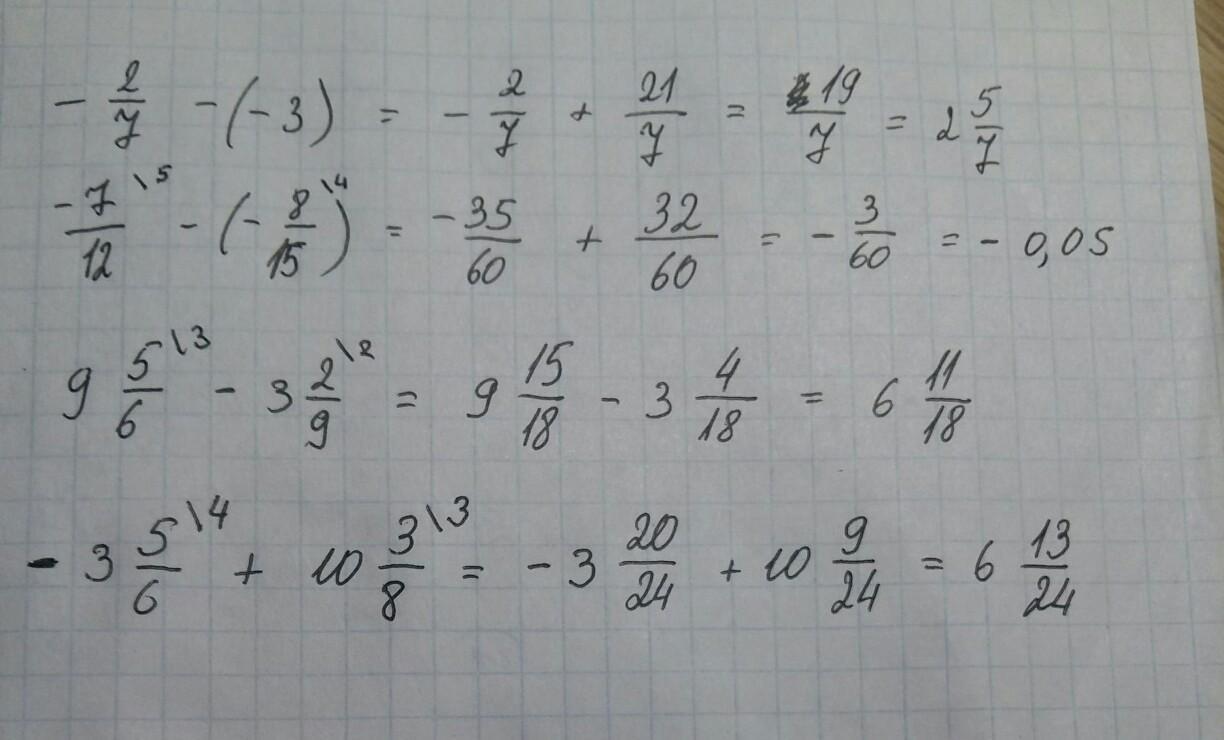 - 2/7 - (- 3) = - 2/7 + 21/7 = 19/7 = 2 5/7
-7/12 \5 - (- 8/15 \4) = -35/60 + 32/60 = - 3/60 = - 0,05
9 5/6 \3 - 3 2/9 \2 = 9 15/18 - 3 4/18 = 6 11/18
- 3 5/6 \4 + 10 3/8 \3 = - 3 20/24 + 10 9/24 = 6 13/24